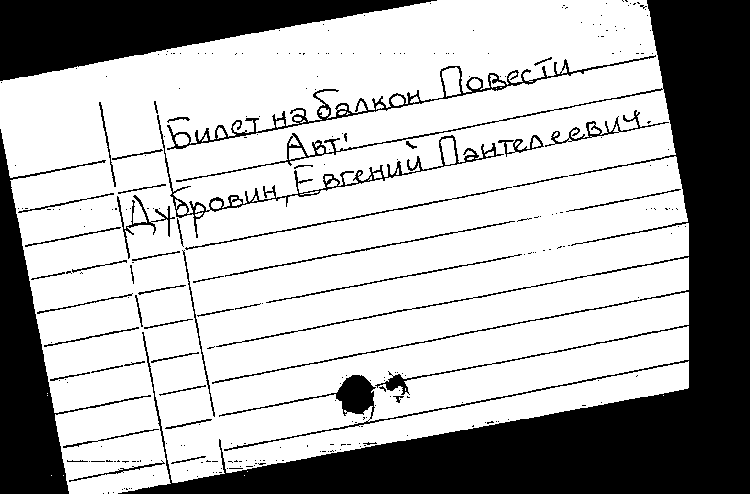 Билет на балкон Повести.
Авт:
Дубровин, Евгений Пантелеевич.